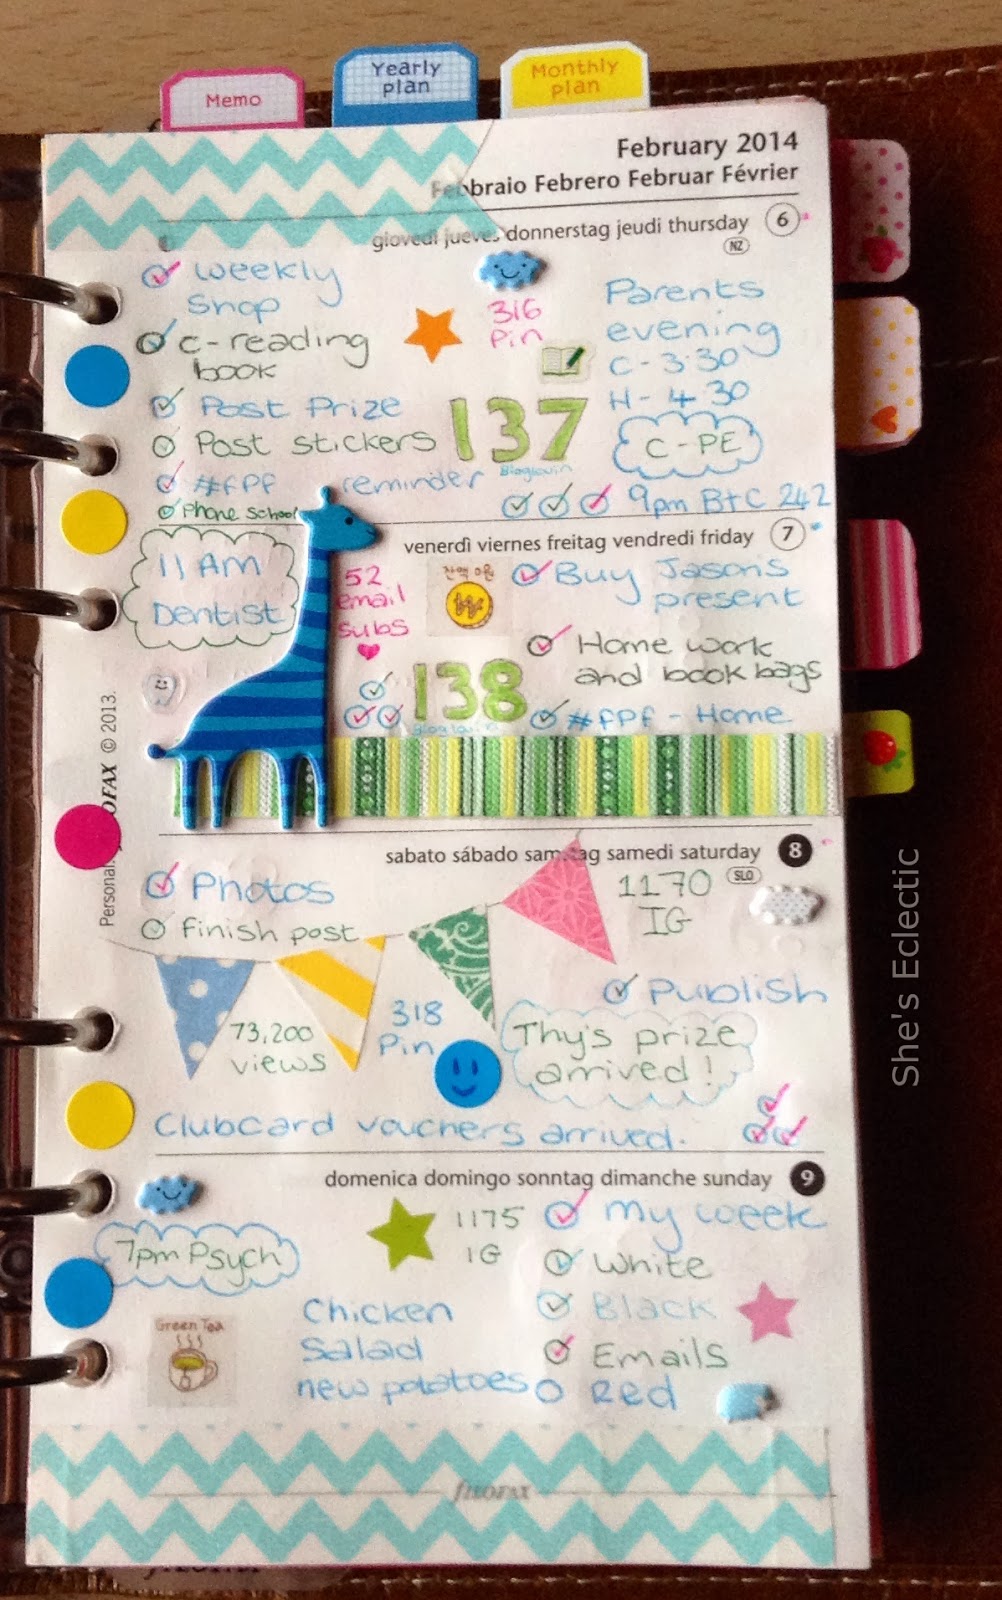 Memo
Yearly
plan
Monthly
plan
February 2014
Febbraio Febrero Februar Février
giovedì jueves donnerstag jeudi thursday 6
NZ
Weekly
Shop
c-reading
book
Post Prize
Post stickers
#fpf reminder
Phone school
316
Pin
137
Bloglovin
Parents
evening
C-3:30
H-4.30
C-PE
9pm BtC 242
venerdì viernes freitag vendredi friday 7
11 AM
Dentist
52
email
subs
잔액 0원
₩
Buy Jason's
present
Home work
and book bags
138
Bloglovin
#fpf - Home
Personal FILOFAX © 2013.
sabato sábado samstag samedi saturday 8
SLO
Photos
finish post
1170
IG
Publish
73,200
views
318
Pin
Thy's prize
arrived!
Clubcard vouchers arrived.
domenica domingo sonntag dimanche sunday 9
7pm Psych
1175
IG
My week
White
Black
Emails
Red
Green Tea
Chicken
Salad
new potatoes
filofax
She's Eclectic